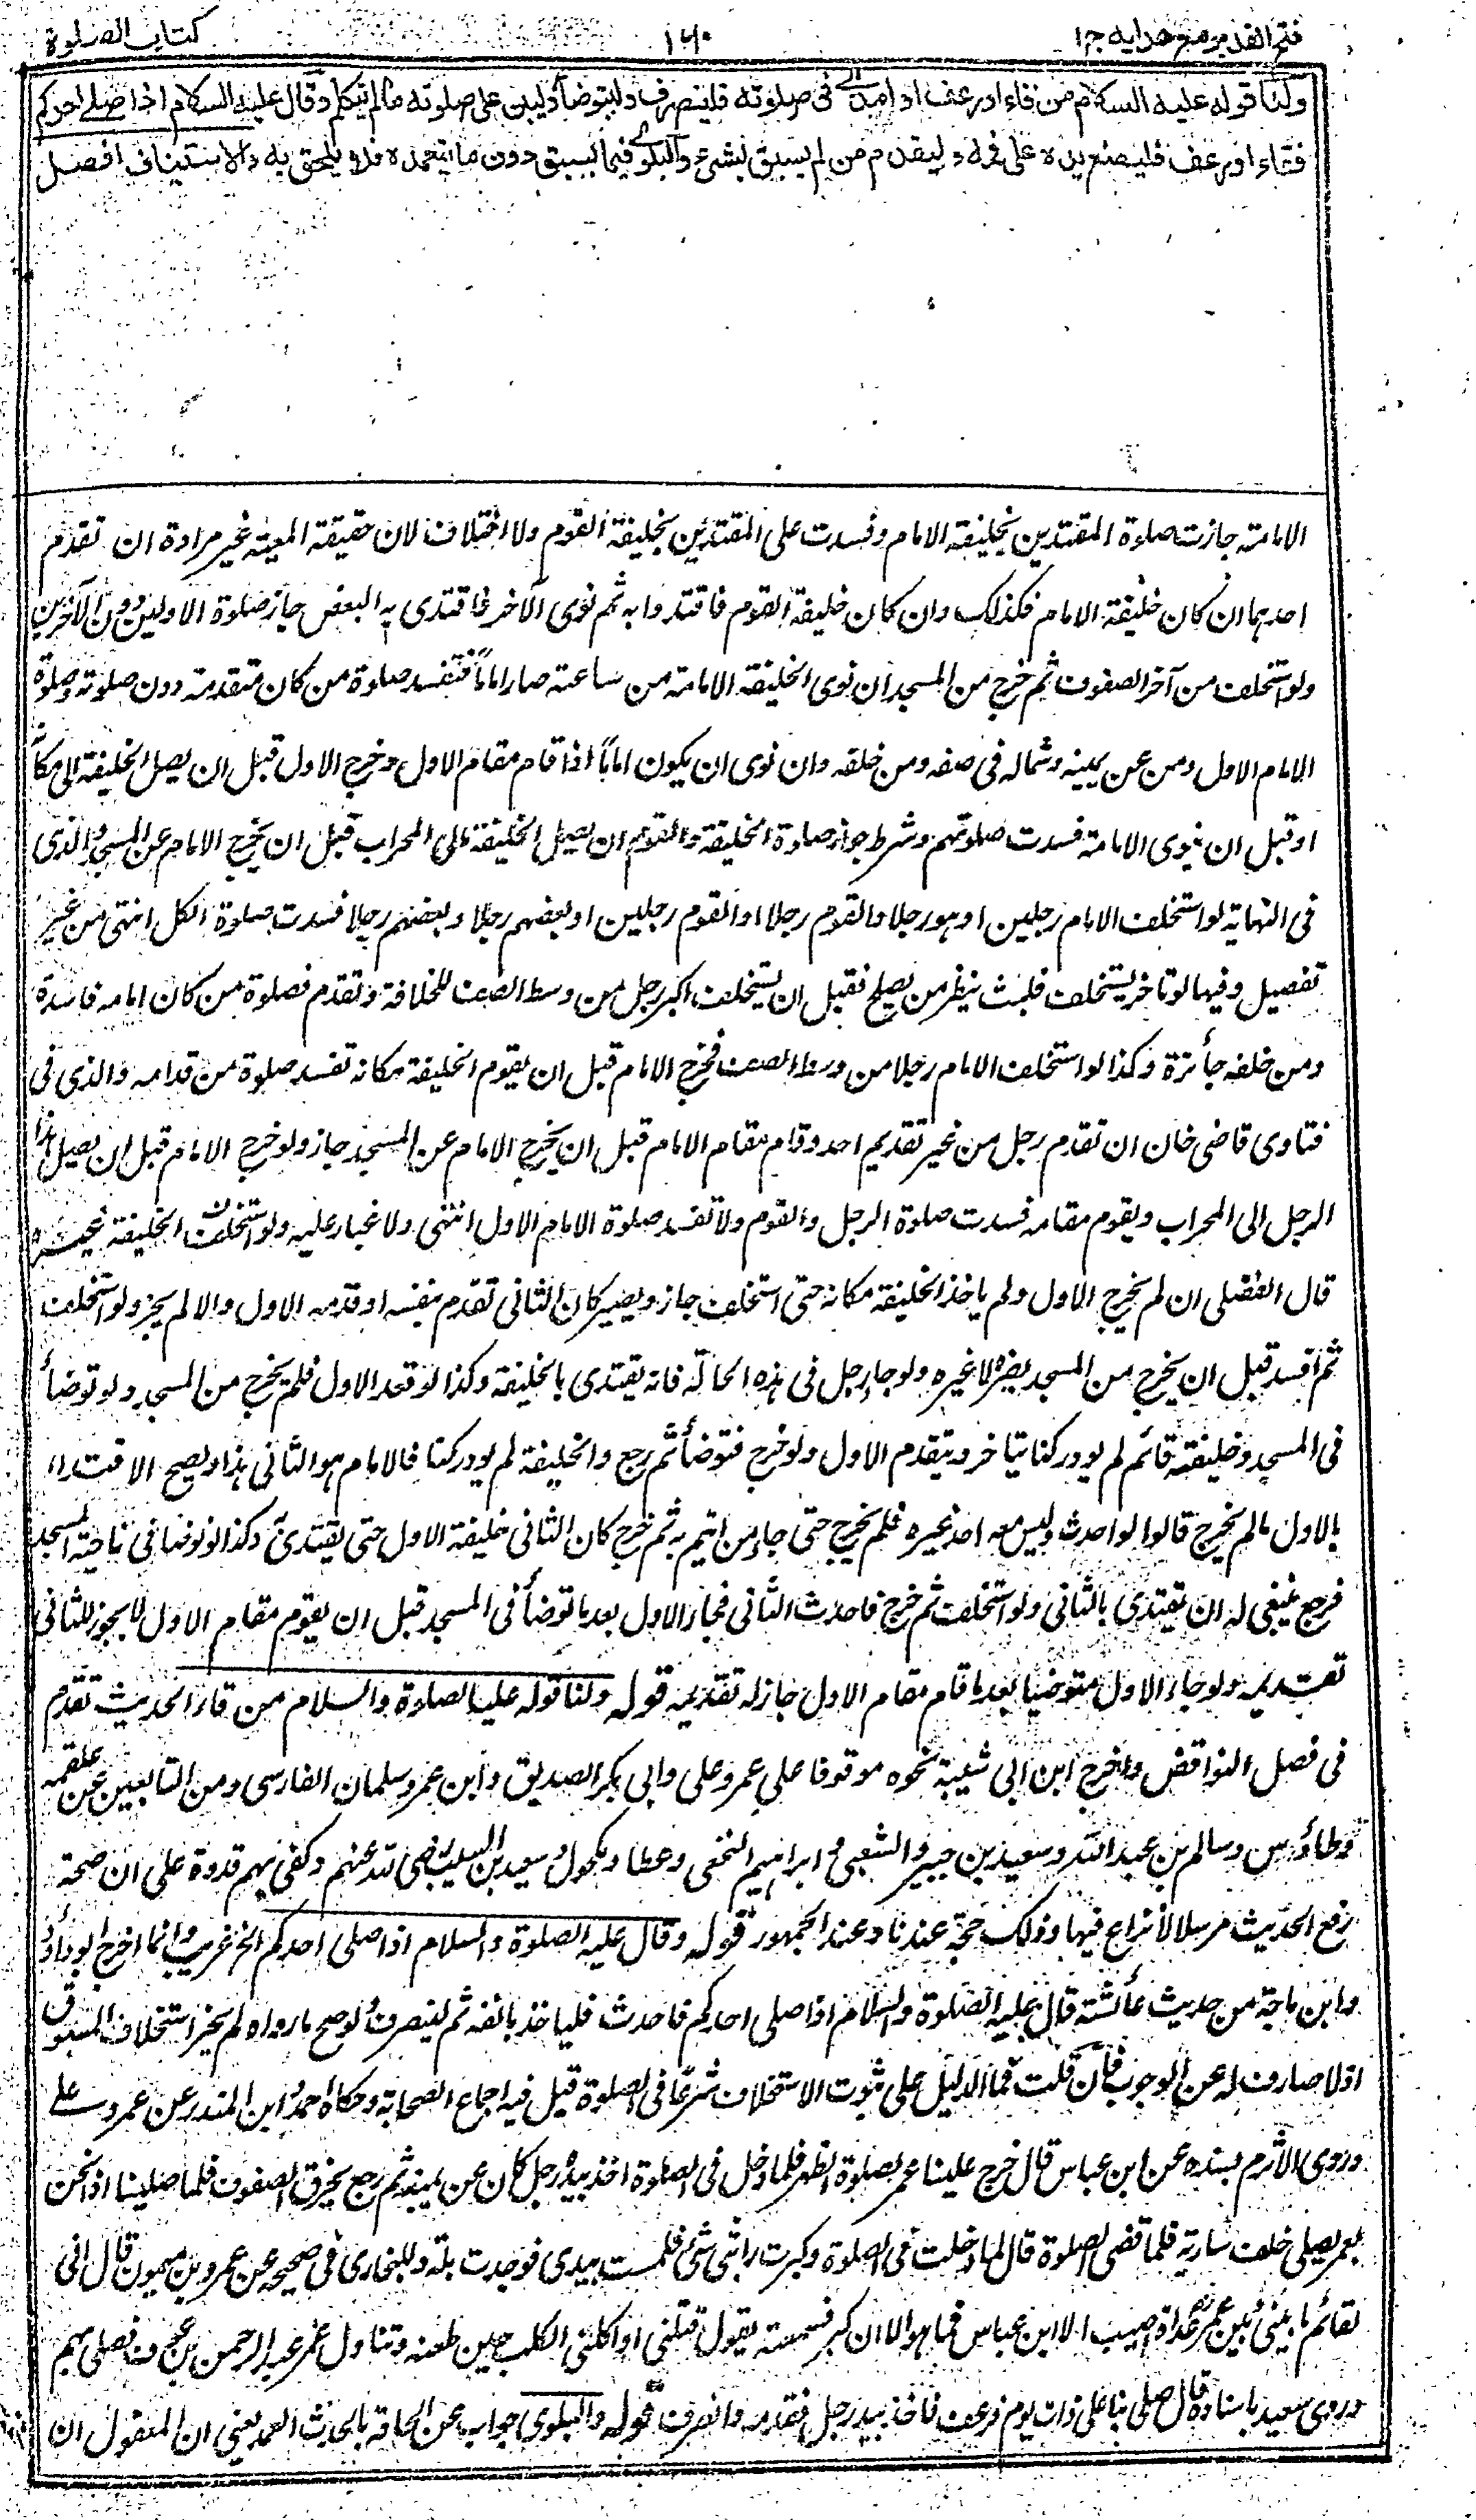 فتح القدير مع هدايه ج ١
١٦٠
كتاب الصلوة
ولنا قوله عليه السلام من قاء او رعف او امذى فى صلوته فلينصرف وليتوضأ وليبن على صلوته ما لم يتكلم وقال عليه السلام اذا صلى احدكم
فقاء او رعف فليضع يده على فمه وليقدم من لم يسبق بشئ والبلوى فيما يسبق دون ما يتعمده فلا يلحق به والاستيناف افضل
الامامة جازت صلوة المقتدين بخليفة الامام وفسدت على المقتدين بخليفة القوم ولا اختلاف لان حقيقة المعية غير مرادة ان تقدم
احدهما ان كان خليفة الامام فكذلك وان كان خليفة القوم فاقتدوا به ثم نوى الآخر فاقتدى به البعض جاز صلوة الاولين دون الآخرين
ولو استخلف من آخر الصفوف ثم خرج من المسجد ان نوى الخليفة الامامة من ساعته صار اماماً فتفسد صلوة من كان متقدمه دون صلوته وصلوة
الامام الاول ومن عن يمينه وشماله فى صفه ومن خلفه وان نوى ان يكون اماماً اذا قام مقام الاول وخرج الاول قبل ان يصل الخليفة الى مكانه
او قبل ان ينوى الامامة فسدت صلوتهم وشرط جواز صلوة الخليفة والقوم ان يصل الخليفة الى المحراب قبل ان يخرج الامام عن المسجد والذى
فى النهاية لو استخلف الامام رجلين او هو رجلا والقوم رجلا او القوم رجلين او بعضهم رجلا وبعضهم رجلا فسدت صلوة الكل انتهى من غير
تفصيل وفيها لو تاخر ليستخلف فلبث ينظر من يصلح فقبل ان يستخلف اكبر رجل من وسط الصف للخلافة وتقدم فصلوة من كان امامه فاسدة
ومن خلفه جائزة وكذا لو استخلف الامام رجلا من وسط الصف فخرج الامام قبل ان يقوم الخليفة مكانه تفسد صلوة من قدامه والذى فى
فتاوى قاضى خان ان تقدم رجل من غير تقديم احد وقام مقام الامام قبل ان يخرج الامام عن المسجد جاز ولو خرج الامام قبل ان يصل هذا
الرجل الى المحراب ويقوم مقامه فسدت صلوة الرجل والقوم ولا تفسد صلوة الامام الاول انتهى ولا غبار عليه ولو استخلف الخليفة غيره
قال الفضلى ان لم يخرج الاول ولم ياخذ الخليفة مكانه حتى استخلف جاز ويصير كان الثانى تقدم بنفسه او قدمه الاول والا لم يجز ولو استخلف
ثم افسد قبل ان يخرج من المسجد يضره لا غيره ولو جاء رجل فى هذه الحالة فانه يقتدى بالخليفة وكذا لو قعد الاول فلم يخرج من المسجد ولو توضأ
فى المسجد وخليفته قائم لم يودر كنا يتاخر ويتقدم الاول ولو خرج فتوضأ ثم رجع والخليفة لم يودر كنا فالامام هو الثانى هذا ويصح الاقتداء
بالاول ما لم يخرج قالوا لو احدث وليس معه احد غيره فلم يخرج حتى جاء من ائتم به ثم خرج كان الثانى خليفة الاول حتى يقتدى وكذا لو توضأ فى ناحية المسجد
فرجع ينبغى له ان يقتدى بالثانى ولو استخلف ثم خرج فاحدث الثانى فجاء الاول بعد ما توضأ فى المسجد قبل ان يقوم مقام الاول لا يجوز للثانى
تقديمه ولو جاء الاول متوضيا بعد ما قام مقام الاول جاز له تقديمه قوله ولنا قوله عليه الصلوة والسلام من قاء الحديث تقدم
فى فصل النواقض واخرج ابن ابى شيبة نحوه موقوفا على عمر وعلى وابى بكر الصديق وابن عمر وسلمان الفارسى ومن التابعين عن علقمه
وطاؤس وسالم بن عبد الله وسعيد بن جبير والشعبى وابراهيم النخعى وعطا ومكحول وسعيد بن المسيب رضى الله عنهم وكفى بهم قدوة على ان صحة
رفع الحديث مرسلا لا نزاع فيها وذلك حجة عندنا وعند الجمهور قوله وقال عليه الصلوة والسلام اذا صلى احدكم الخ غريب وانما اخرج ابو داؤد
وابن ماجة من حديث عائشة قال عليه الصلوة والسلام اذا صلى احدكم فاحدث فلياخذ بانفه ثم لينصرف ولو صح ما رواه لم يجز استخلاف المسبوق
اذ لا صارف له عن الوجوب فان قلت فما الدليل على ثبوت الاستخلاف شرعا فى الصلوة قيل فيه اجماع الصحابة وحكاه احمد وابن المنذر عن عمر وعلى
وروى الاثرم بسنده عن ابن عباس قال خرج علينا عمر بصلوة الظهر فلما دخل فى الصلوة اخذ بيد رجل كان عن يمينه ثم رجع يخرق الصفوف فلما صلينا اذا نحن
بعمر يصلى خلف سارية فلما قضى الصلوة قال لما دخلت فى الصلوة وكبرت رابنى شئ فلمست بيدى فوجدت بلة وللبخارى فى صحيحه عن عمرو بن ميمون قال انى
لقائم ما بينى وبين عمر غداة اصيب الا ابن عباس فما هو الا ان كبر فسمعته يقول قتلنى او اكلنى الكلب حين طعنه وتناول عمر عبد الرحمن بن عوف فصلى بهم
وروى سعيد باسناده قال صلى بنا على ذات يوم فرعف فاخذ بيد رجل فقدمه وانصرف قوله والبلوى جواب عن الحاقه بالحدث العمد يعنى ان المنقول ان